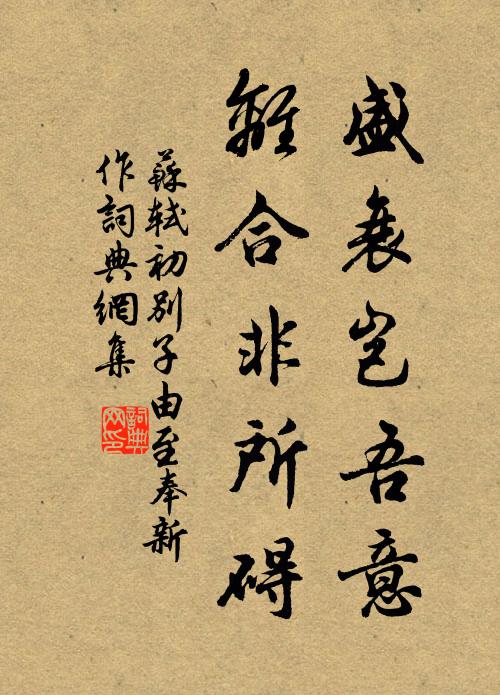 盛衰豈吾意
離合非所礙
蘇軾初別子由至奉新
作詞典網集
詞典網印